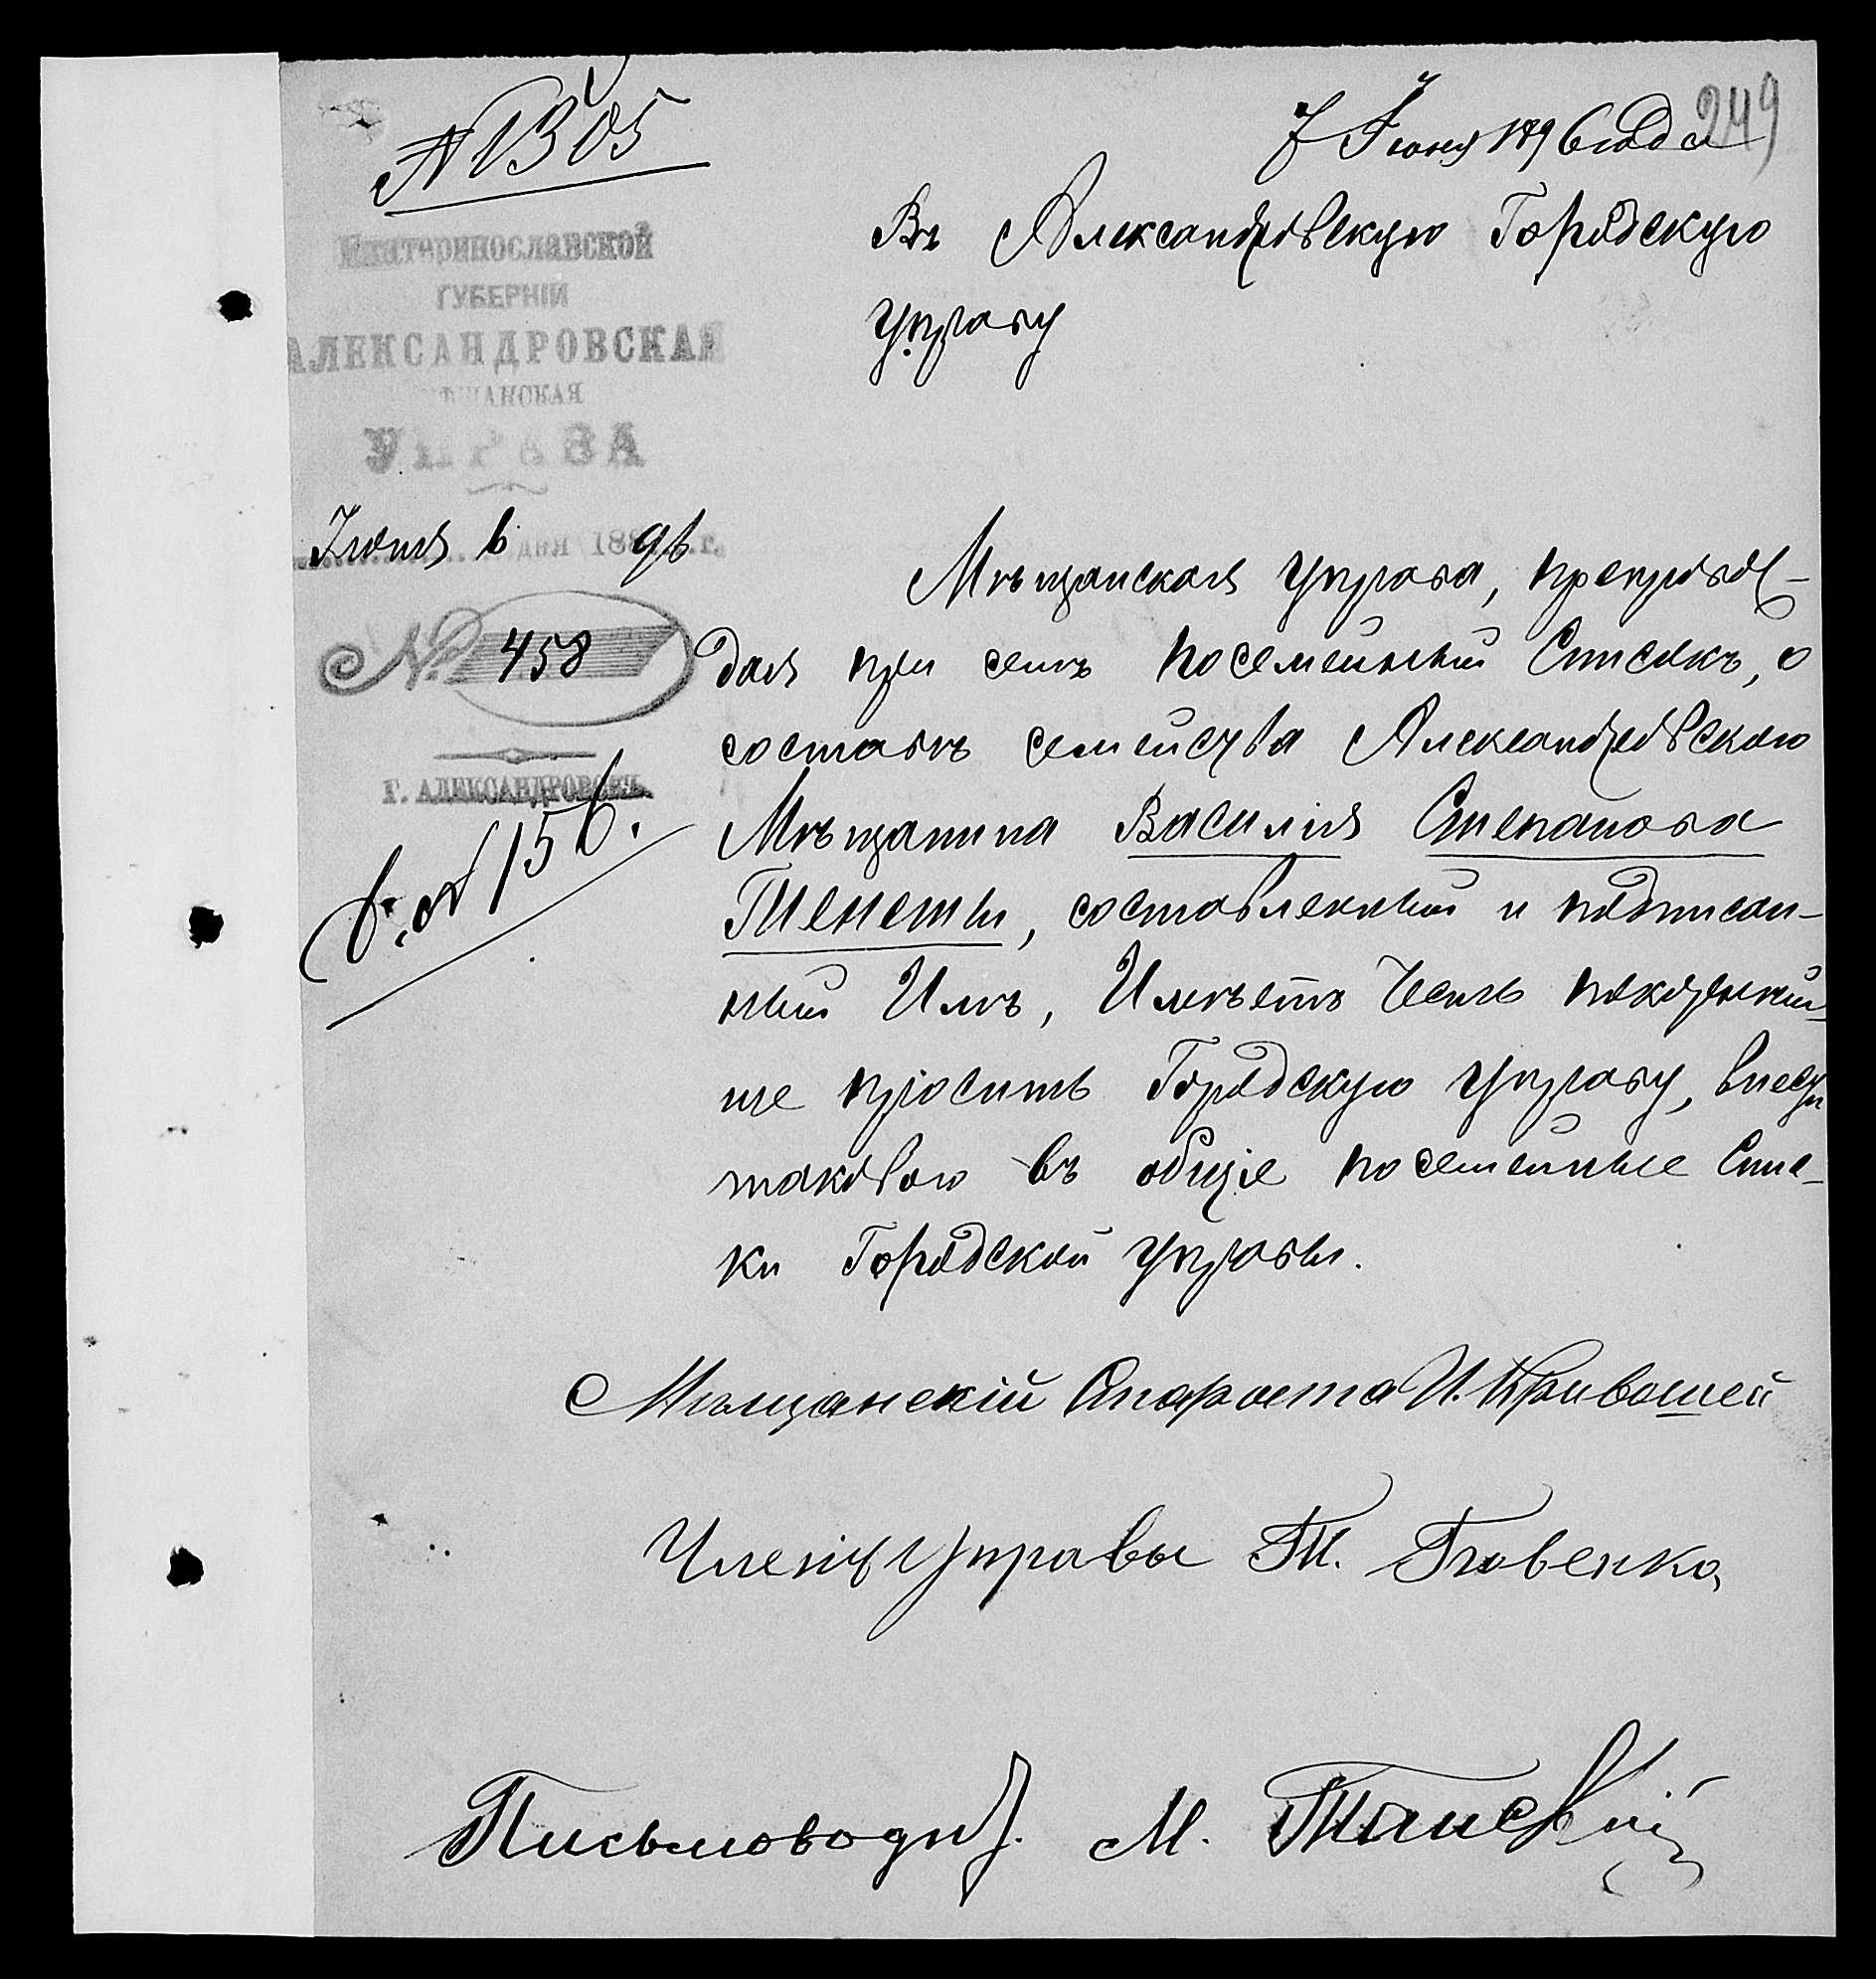 № 1305
7 Июня 1896 года
249
Екатеринославской
ГУБЕРНІИ
АЛЕКСАНДРОВСКАЯ
ЩАНСКАЯ
УПРАВА
Июня 6 дня 1896 г.
№ 458
Г. АЛЕКСАНДРОВСКЪ.
№ 156.
Въ Александровскую Городскую
Управу
Мѣщанская Управа, препровож-
дая при семъ посемейный Списокъ, о
составѣ семейства Александровскаго
Мѣщанина Василія Степанова
Тенеты, составленный и подписан-
ный Имъ, Имѣетъ Честь покорнѣй-
ше просить Городскую Управу, внести
таковой въ общіе посемейные Спис-
ки Городской Управы.
Мѣщанскій Староста И. Кривошей
Членъ Управы Т.
Письмовод. М.